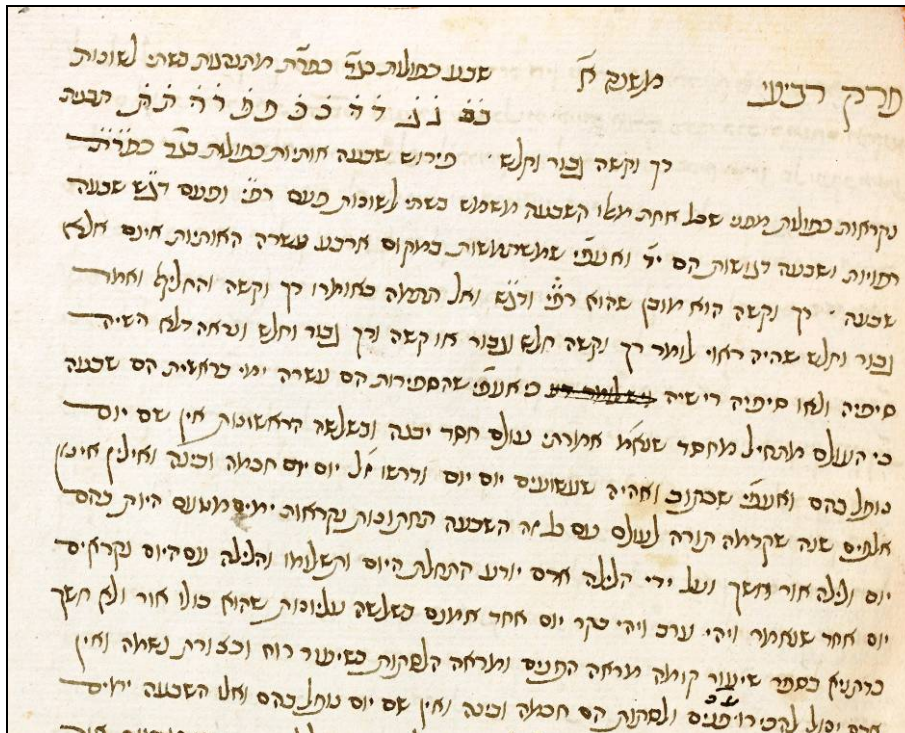 פרק רביעי משנה א' שבע כפולות בגד כפרת מתנהגות בשתי לשונות
בב גג דד ככ פפ רר תת תבנית
רך וקשה גבור וחלש פירוש שבעה אותיות כפולות בגד כפרת
נקראות כפולות מפני שכל אחת מאלו השבעה משמש בשתי לשונות פעם רפי ופעם דגש שבעה
רפויות ושבעה דגושות הם יד ואעפי שמשתמשות במקום ארבע עשרה האותיות אינם אלא
שבעה רך וקשה הוא מובן שהוא רפי ודגש ואל תתמה באומרו רך וקשה והחליף ואמר
גבור וחלש שהיה ראוי לומר רך וקשה חלש וגבור או קשה ורך גבור וחלש ונראה דלא
סיפיה ולאו סיפיה רישיה כי אעפי שהספירות הם עשרה ימי בראשית הם שבעה
כי העולם מתחיל מחסד שנאמ אמרתי עולם חסד יבנה ובשלשה הראשונות אין שם יום
נוהל בהם ואעפי שכתוב ואהיה שעשועים יום יום ודרשו יום יום חכמה ובינה ואיליך
אלפים שנה שקדמה תורה לעולם עם כל זה השבעה תחתונות נקראות ימים מטעם היות בהם
יום ולילה אור וחשך ועל ידי הלילה אדם יודע התחלת היום ותשלומו והלילה עם היום נקראים
יום אחד שנאמר ויהי ערב ויהי בקר יום אחד אמנם בשלשה עליונות שהוא כולו אור ולא חשך
כדתניא בספר שיעור קומה מראה הפנים ומראה הלסתות כשיעור רוח וכצורת נשמה ואין
יכול להכירו ולסתות הם חכמה ובינה ואין שם יום נוהל בהם ואלו השבעה ימים